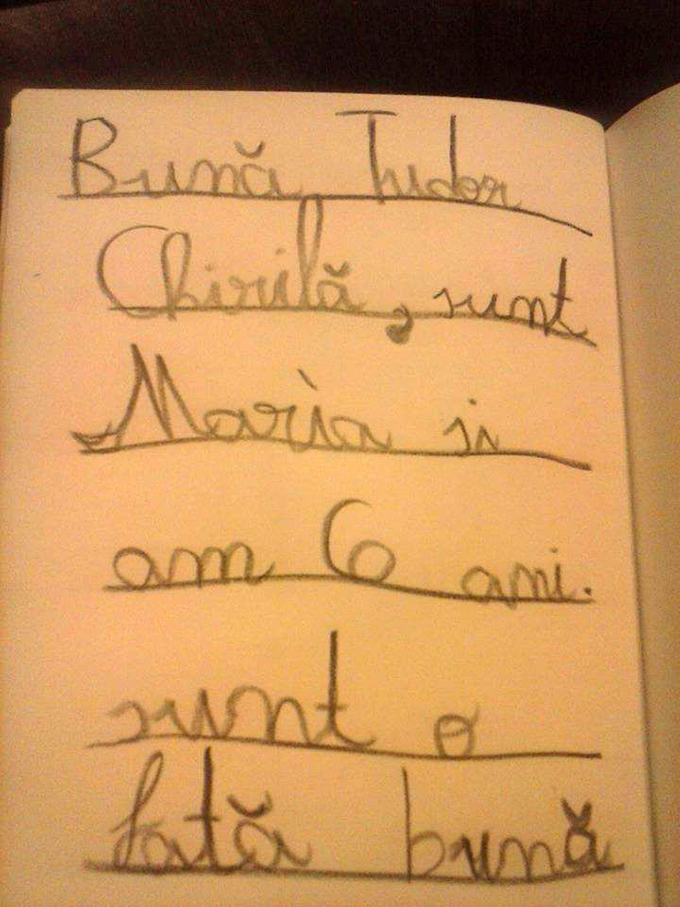 Bună Tudor
Chirilă, sunt
Maria si
am 6 ani.
sunt o
fată bună